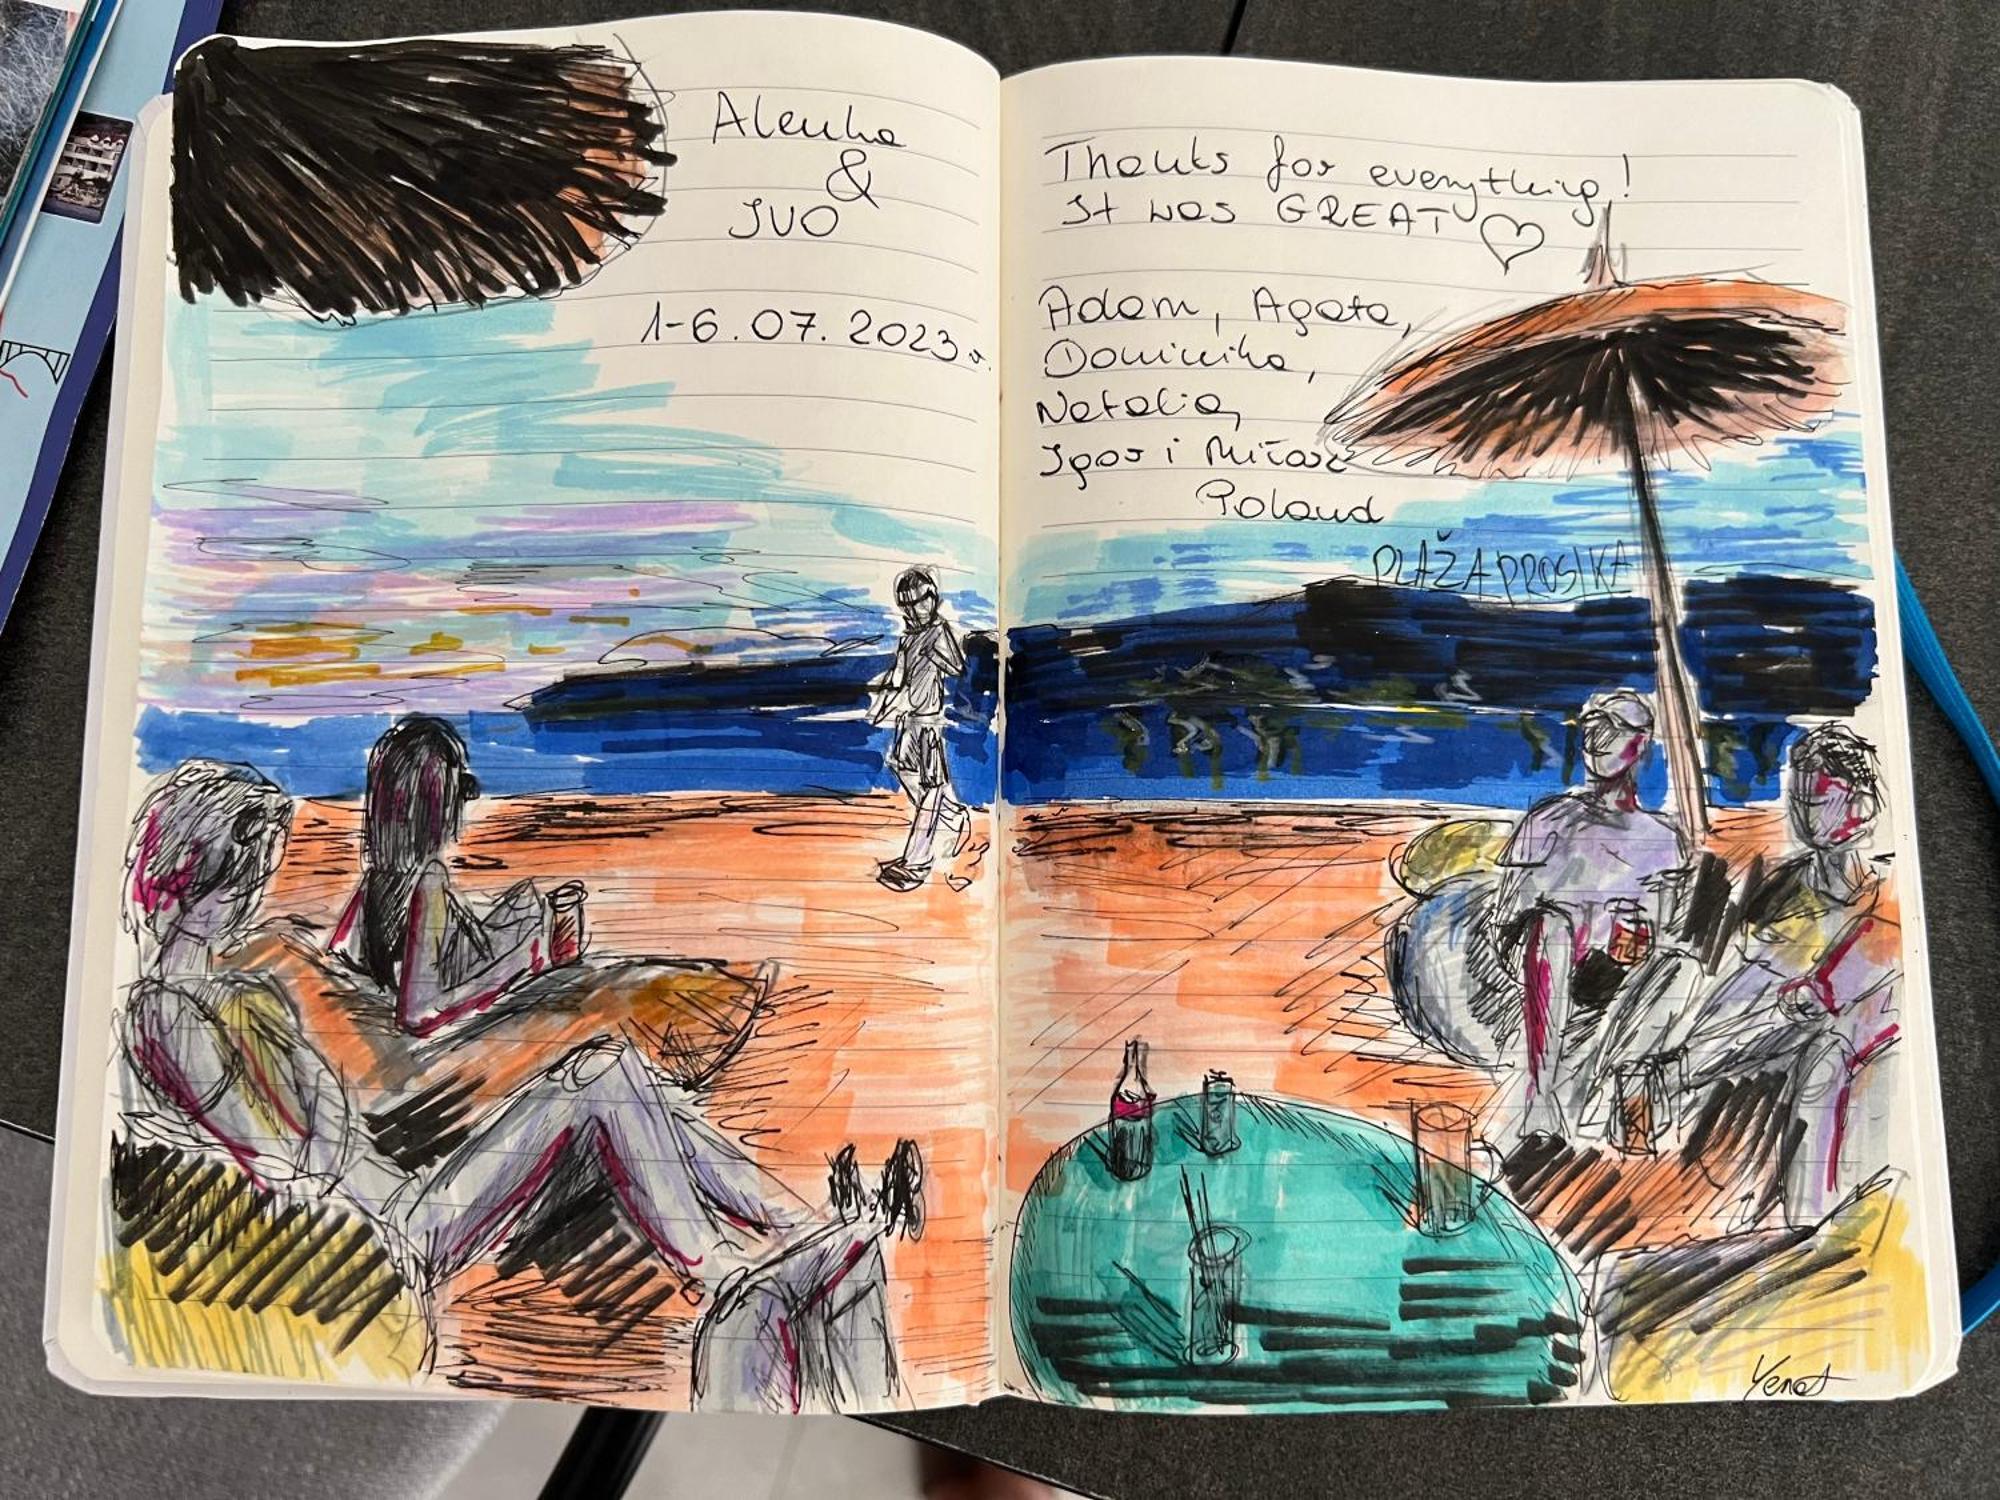 Alenka
&
IVO
1-6.07.2023 r.
Thanks for everything!
It was GREAT
Adam, Agata,
Dominika,
Natalia,
Igor i Miłosz
Poland
PLAŽA PROSIKA
Yenot